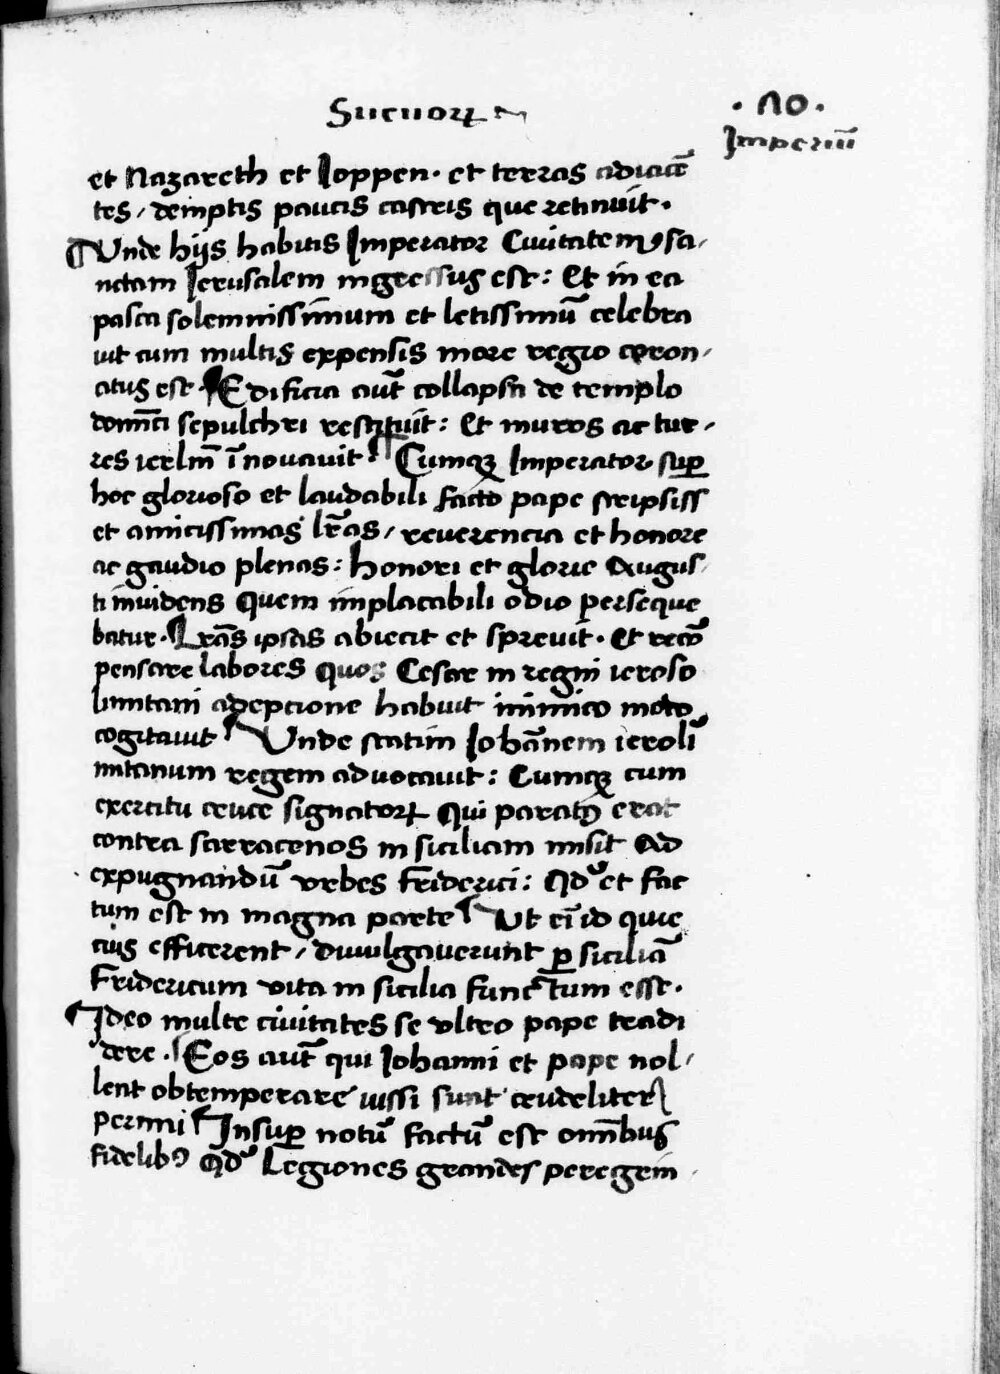 Sueuorꝝ
· 𐒐0 ·
Imperiū
et Nazareth et Ioppen · et terras adiacē
tes / demptis paucis castris que retinuit ·
¶ Unde hijs habitis Imperator Ciuitatem sa /
nctam Ierusalem ingressus est : Et in ea
pasca solemnissimum et letissimū celebra
uit cum multis expensis more regio coron /
atus est · ¶ Edificia aut̄ collapsa de templo
domīci sepulchri restituit : Et muros ac tur /
res ierlm̄ īnouauit ¶ Cumqꝫ Imperator suꝑ
hoc glorioso et laudabili facto pape scripsiss
et amicissimas lr̄as / reuerencia et honore
ac gaudio plenas : honori et glorie Augus /
ti inuidens Quem implacabili odio perseque
batur · ¶ Lrās ipsas abiecit et spreuit · Et recō
pensare labores Quos Cesar in regni ieroso
limitani adepcione habuit inimico modo
cogitauit ¶ Unde statim Iohānnem ieroli
mitanum regem aduocauit : Cumqꝫ cum
exercitu cruce signatorꝝ Qui paratꝰ erat
contra sarracenos in siciliam misit Ad
expugnandū vrbes Friderici : Qd̕ et fac
tum est in magna parte ¶ Ut eī id quie
cius efficerent / diuulgauerunt ꝑ siciliā
Fridericum vita in sicilia functum esse ·
¶ Ideo multe ciuitates se vltro pape tradi
dere · ¶ Eos aut̄ qui Iohanni et pape nol /
lent obtemperare iussi sunt crudeliter
perimi ¶ Insuꝑ notū factū est omībus
fidelibꝰ Qd̕ Legiones grandes peregrin /